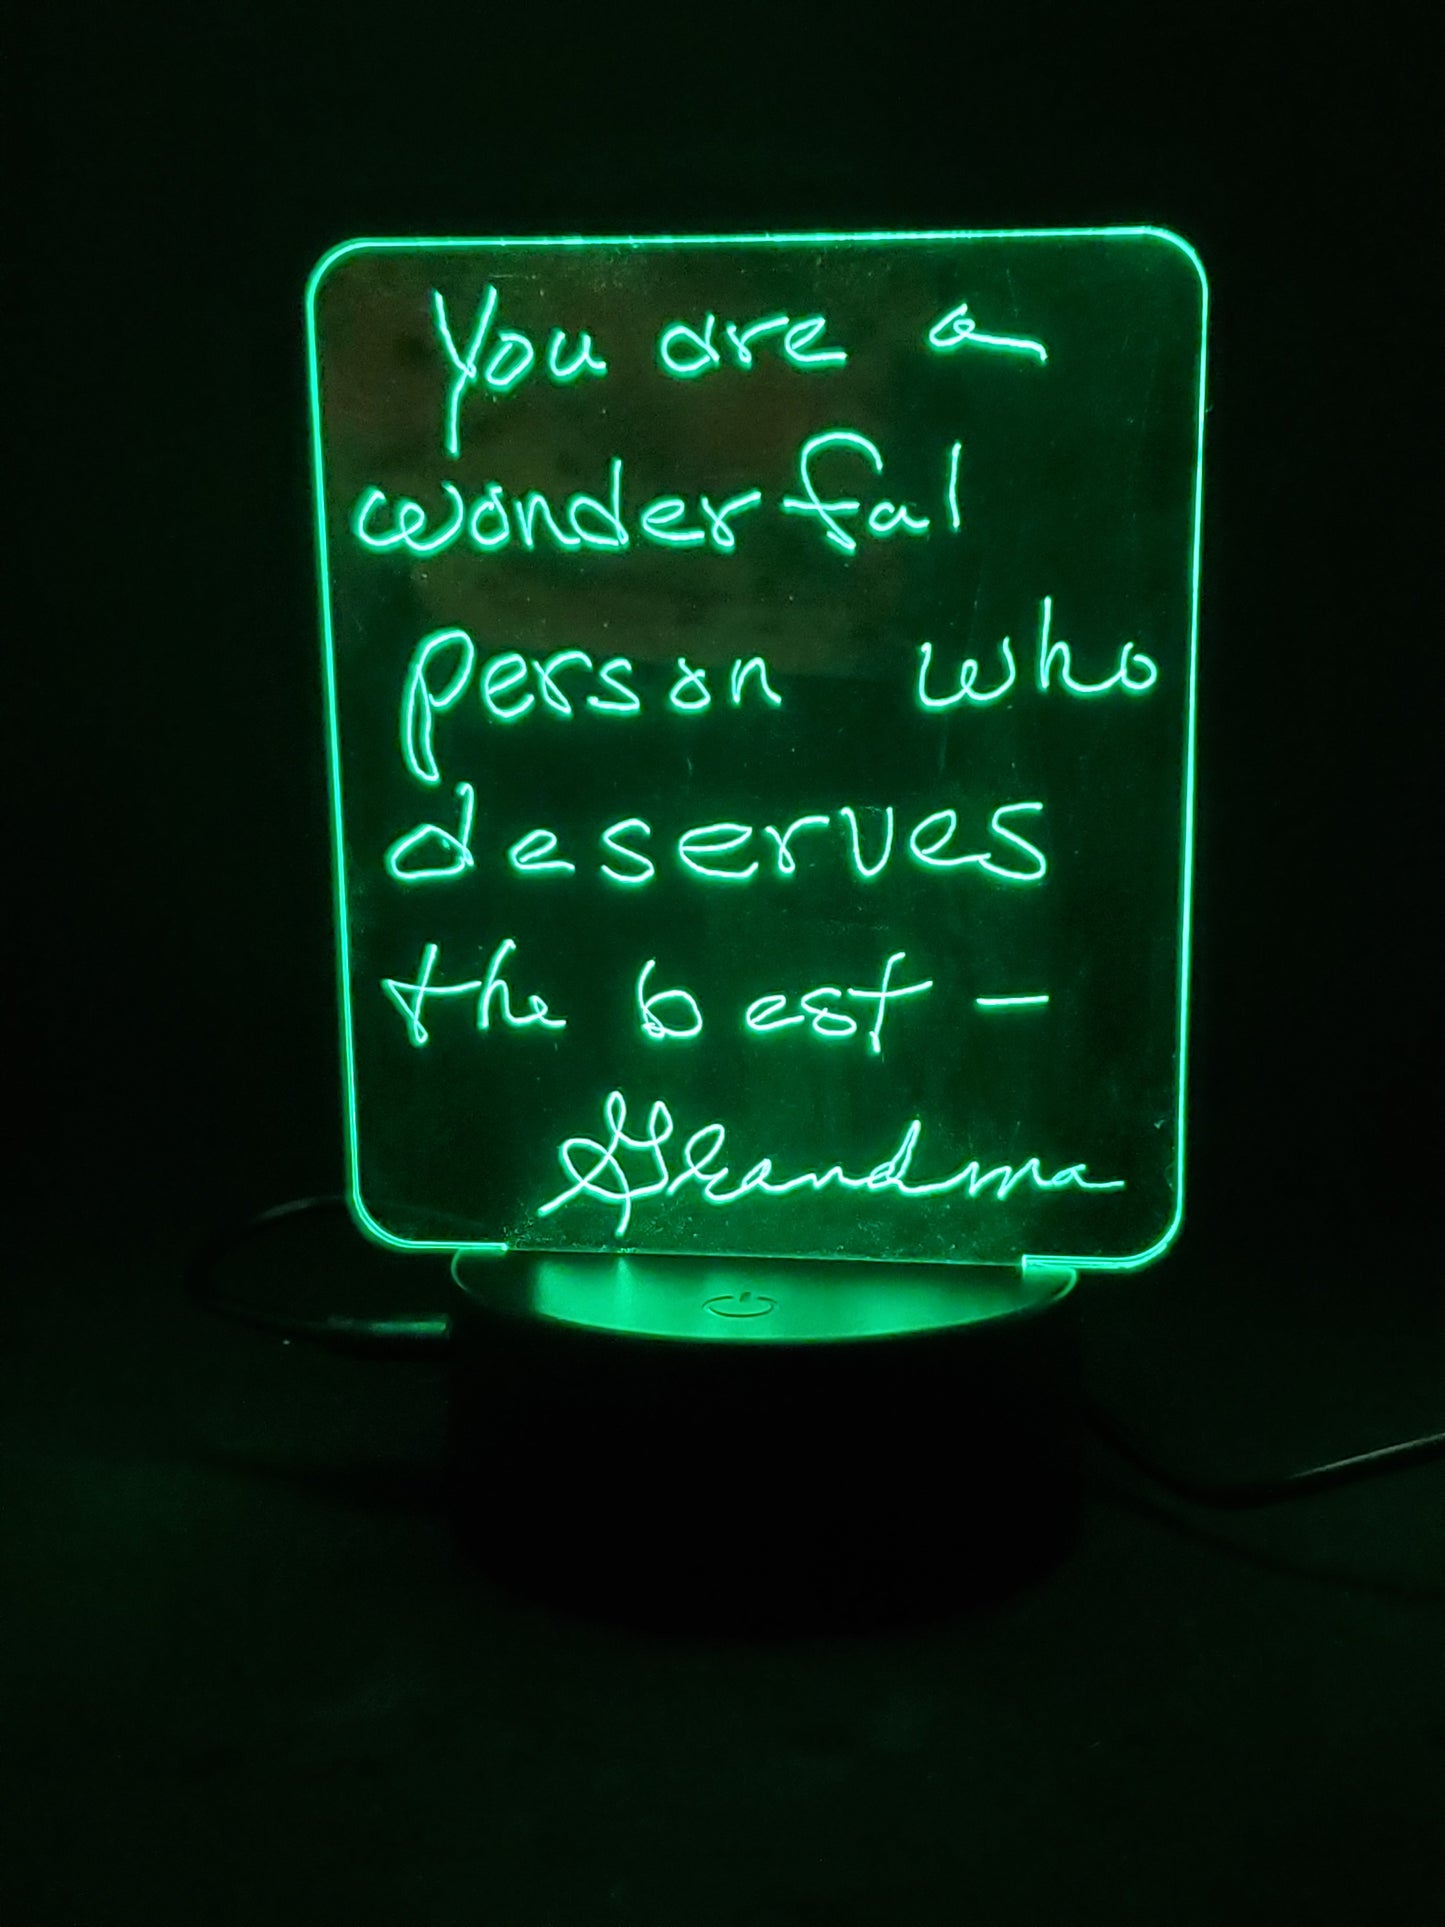 You are a
wonderful
person who
deserves
the best -
Grandma